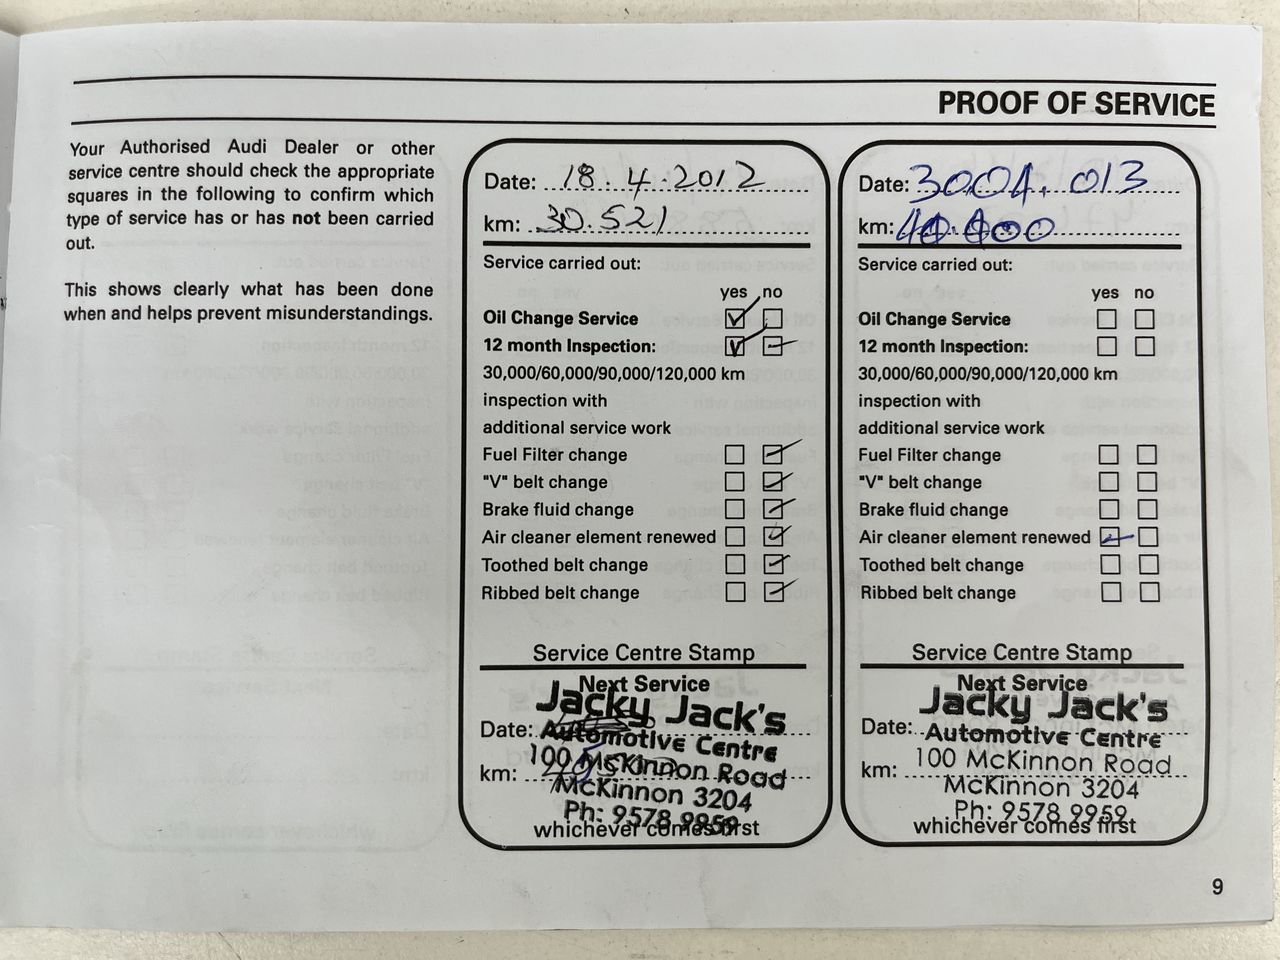 PROOF OF SERVICE
Your Authorised Audi Dealer or other
service centre should check the appropriate
squares in the following to confirm which
type of service has or has not been carried
out.
This shows clearly what has been done
when and helps prevent misunderstandings.
Date: 18.4.2012
km: 30.521
Service carried out:
yes no
Oil Change Service
12 month Inspection:
30,000/60,000/90,000/120,000 km
inspection with
additional service work
Fuel Filter change
"V" belt change
Brake fluid change
Air cleaner element renewed
Toothed belt change
Ribbed belt change
Service Centre Stamp
Next Service
Jacky Jack's
Date:
Automotive Centre
100 McKinnon Road
km:
McKinnon 3204
Ph: 9578 9959
whichever comes first
Date: 3004.013
km:
Service carried out:
yes no
Oil Change Service
12 month Inspection:
30,000/60,000/90,000/120,000 km
inspection with
additional service work
Fuel Filter change
"V" belt change
Brake fluid change
Air cleaner element renewed
Toothed belt change
Ribbed belt change
Service Centre Stamp
Next Service
Jacky Jack's
Date:
Automotive Centre
100 McKinnon Road
km:
McKinnon 3204
Ph: 9578 9959
whichever comes first
9